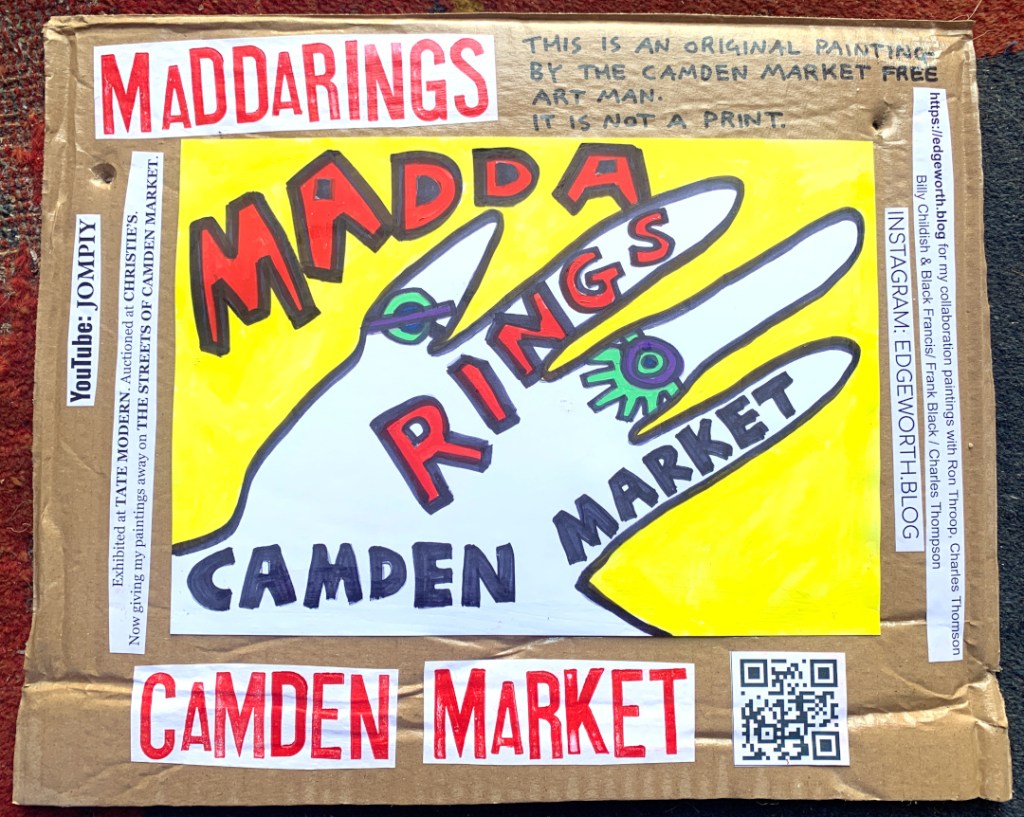 MADDARINGS
THIS IS AN ORIGINAL PAINTING-
BY THE CAMDEN MARKET FREE
ART MAN.
IT IS NOT A PRINT.
YouTube: JOMPIY
Exhibited at TATE MODERN. Auctioned at CHRISTIE'S.
Now giving my paintings away on THE STREETS OF CAMDEN MARKET.
MADDA
RINGS
CAMDEN
MARKET
https://edgeworth.blog for my collaboration paintings with Ron Throop, Charles Thomson
Billy Childish & Black Francis/ Frank Black / Charles Thompson
INSTAGRAM: EDGEWORTH.BLOG
CAMDEN MARKET